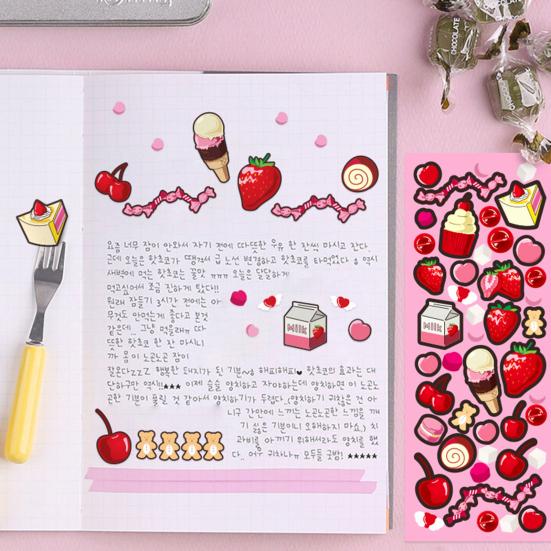 CHOCOLATE
요즘 너무 잠이 안와서 자기 전에 따뜻한 우유 한 잔씩 마시고 잔다.
근데 오늘은 핫초코가 땡겨서 급 노선 변경하고 핫초코를 타먹었다 & 역시
새벽에 먹는 핫초코는 꿀맛 ㅠㅠㅠ 오늘은 달달하게
먹고싶어서 조금 진하게 탔다!!
원래 잠들기 3시간 전에는 아
무것도 안먹는게 좋다고 본것
같은데... 그냥 먹을래ㅠ 따
뜻한 핫초코 한 잔 마시니
까 몸이 노곤노곤 잠이
잘온다zzZ 행복한 돼지가 된 기분~& 해피해피♥ 핫초코의 효과는 대
단하구만 역시!!★★★ 이제 슬슬 양치하고 자야하는데 양치하면 이 노곤노
곤한 기분이 풀릴 것 같아서 양치하기가 두렵다..(양치하기 귀찮은 건 아
니구 간만에 느끼는 노곤노곤한 느낌을 깨
기 싫은 기분이니 오해하지 마요.) 치
과비를 아끼기 위해서라도 양치를 했
다.. 어우 귀차나ㅠ 모두들 굿밤! ★★★★★
Milk
Milk